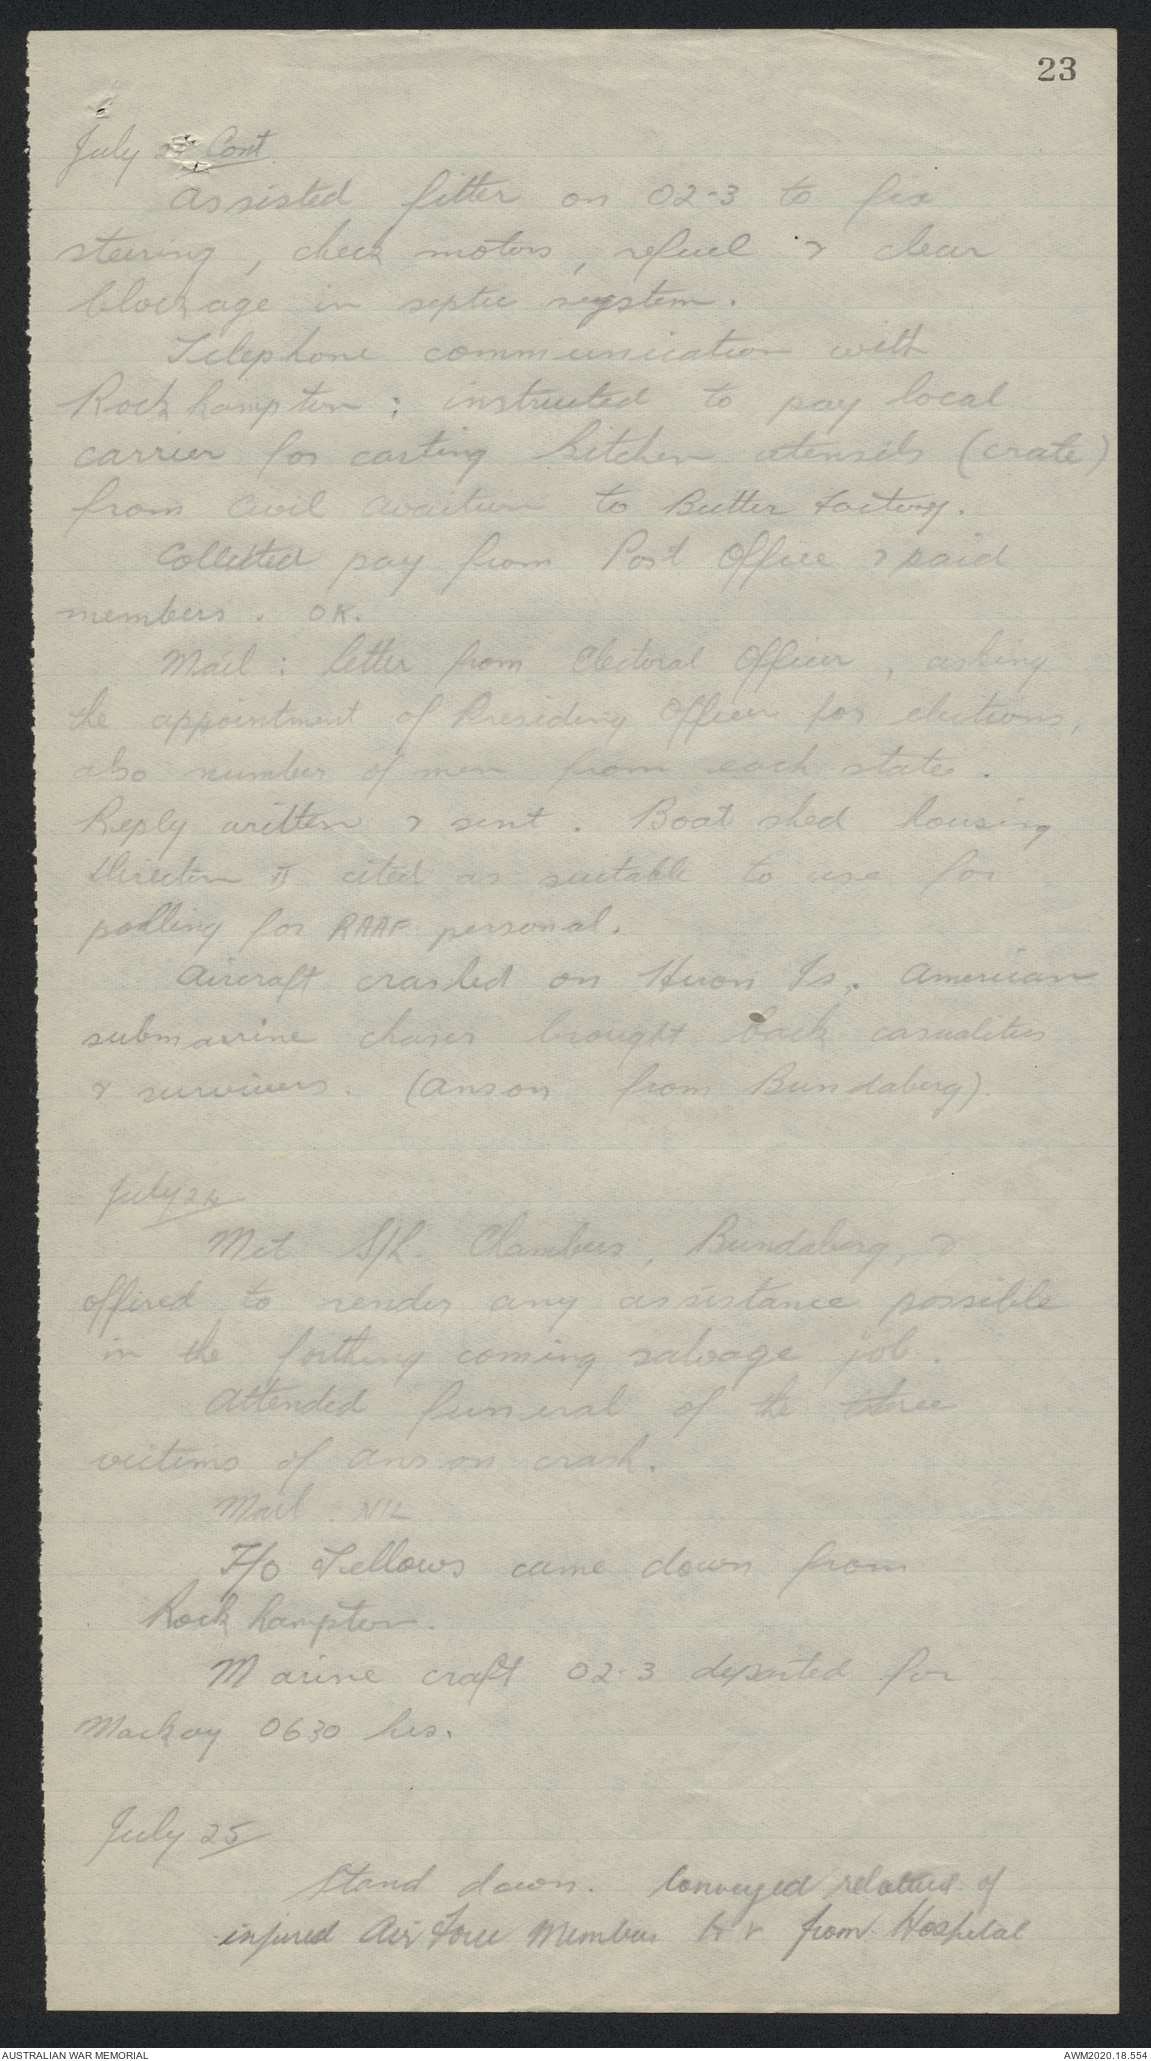 23
July Cont
Assisted fitter on 02-3 to fix
steering, check motors, refuel & clear
blockage in septic system.
Telephone communication with
Rockhampton: instructed to pay local
carrier for carting kitchen utensils (crate)
from Civil Aviation to Butter Factory.
Collected pay from Post Office & paid
members. OK.
Mail: letter from Electoral Officer, asking
the appointment of Presiding Officer for elections,
also number of men from each state.
Reply written & sent. Boat shed housing
cited as suitable to use for
polling for RAAF personal.
Aircraft crashed on Heron Is. American
submarrine chaser brought back casualities
& survivers. (Anson from Bundaberg).
July 24
Met S/L. Chambers, Bundaberg, &
offired to render any assistance possible
in the forthing coming salvage job.
Attended funeral of the three
victims of Anson crash.
Mail: NIL
F/O Fellows came down from
Rockhampton.
Marine craft 02-3 departed for
Mackay 0630 hrs.
July 25
Stand down. Conveyed relatives of
injured Air Force Members to & from Hospital
AUSTRALIAN WAR MEMORIAL
AWM2020.18.554